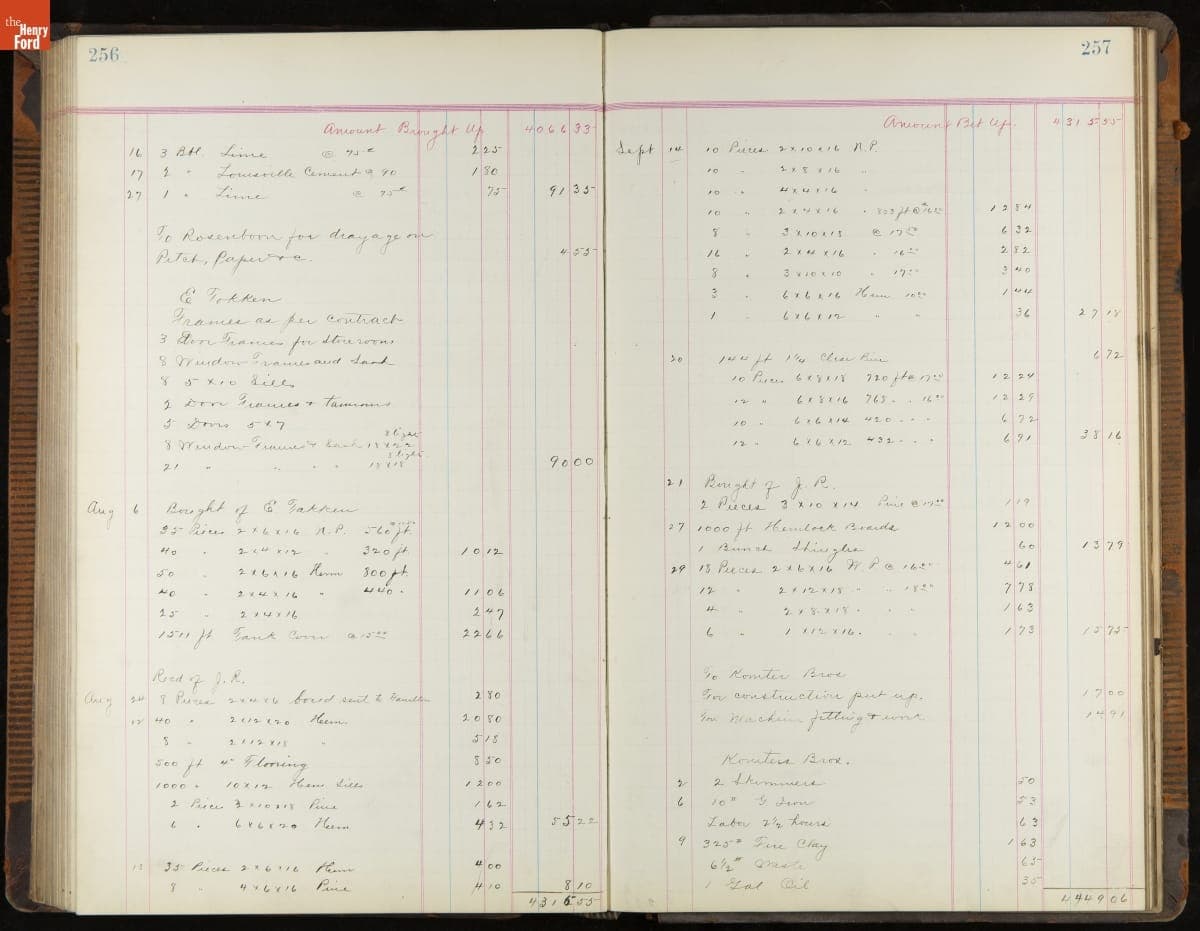 the Henry Ford
256
Amount Brought Up 4066 33
16 3 Bbl. Lime @ 75¢ 2 25
17 2 " Louisville Cement @ 90 1 80
27 1 " Lime @ 75¢ 75 91 35
To Rosenboom for drayage on
Pitch, Paper &c. 4 55
E Takken
Frames as per contract
3 Door Frames for storerooms
8 Window Frames and Sash
8 5 x 10 Sills
2 Door Frames &
5 Doors 5 x 7
8 Window Frames & Sash 18 x 22 8 light
21 " " " " 18 x 18 8 light 90 00
Aug 6 Bought of E Takken
35 Pieces 2 x 6 x 16 N.P. 560 ft.
40 " 2 x 4 x 12 " 320 ft 10 12
50 " 2 x 6 x 16 Hem 800 ft.
40 " 2 x 4 x 16 " 440 " 11 06
25 " 2 x 4 x 16 2 47
1511 ft Tank @ 15 00 22 66
Recd of J. R.
Aug 24 8 Pieces 2 x 4 x 6 bored sent to Hamilton 2 80
12 40 " 2 x 12 x 20 Hem 20 80
8 " 2 x 12 x 18 " 5 18
500 ft 4" Flooring 8 50
1000 " 10 x 12 Hem Sills 12 00
2 Pieces 3 x 10 x 18 Pine 1 62
6 " 6 x 6 x 20 Hem 4 32 55 22
13 35 Pieces 2 x 6 x 16 Hem 4 00
8 " 4 x 6 x 16 Pine 4 10 8 10
4315 55
257
Amount Bot Up. 4315 55
Sept 14 10 Pieces 2 x 10 x 16 N.P.
10 " 2 x 8 x 16 "
10 " 4 x 4 x 16 "
10 " 2 x 4 x 16 " 803 ft @ 16 00 12 84
8 " 3 x 10 x 18 @ 17 00 6 32
16 " 2 x 4 x 16 " 16 00 2 82
8 " 3 x 10 x 10 " 17 00 3 40
3 " 6 x 6 x 16 Hem 10 00 1 44
1 " 6 x 6 x 12 " " 36 27 18
20 144 ft 1 1/4 Clear Pine 6 72
10 Pieces 6 x 8 x 18 720 ft @ 17 00 12 24
12 " 6 x 8 x 16 768 " " 16 00 12 29
10 " 6 x 6 x 14 420 " " " 6 72
12 " 6 x 6 x 12 432 " " " 6 91 38 16
21 Bought of J. R.
2 Pieces 3 x 10 x 14 Pine @ 17 00 1 19
27 1000 ft Hemlock Boards 12 00
1 Bunch Shingles 60 13 79
29 18 Pieces 2 x 6 x 16 W. P @ 16 00 4 61
12 " 2 x 12 x 18 " " 18 00 7 78
4 " 2 x 8 x 18 " " " 1 63
6 " 1 x 12 x 16 " " 1 73 15 75
To Komter Bros
For construction put up. 17 00
For Machine fitting & work 14 91
Komters Bros.
2 2 Skimmers 50
6 10# G Iron 53
Labor 2 1/2 hours 63
9 325# Fire Clay 1 63
6 1/2# Waste 65
1 Gal Oil 35
4449 06